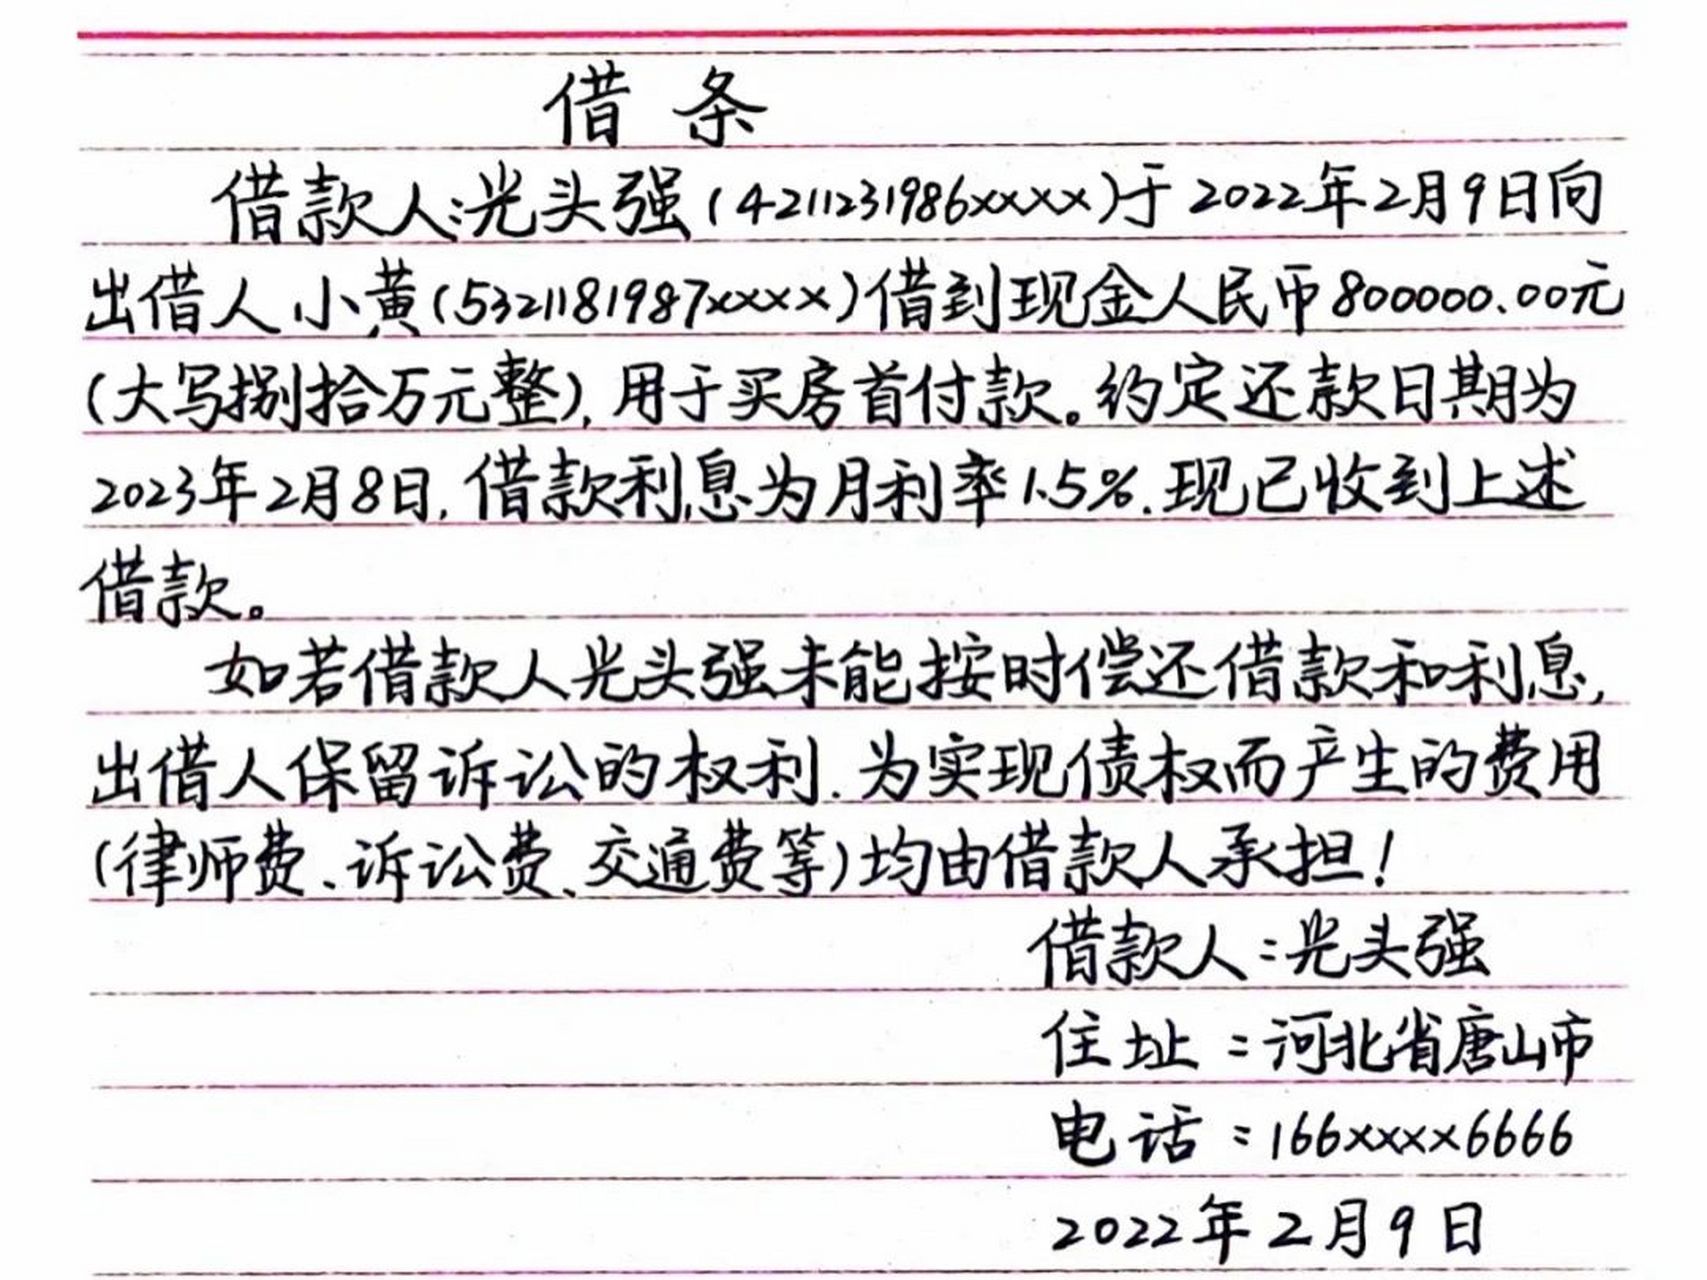 借条
借款人:光头强(4211231986xxxx)于2022年2月9日向
出借人小黄(5321181987xxxx)借到现金人民币800000.00元
(大写捌拾万元整),用于买房首付款。约定还款日期为
2023年2月8日,借款利息为月利率1.5%.现已收到上述
借款。
如若借款人光头强未能按时偿还借款和利息,
出借人保留诉讼的权利.为实现债权而产生的费用
(律师费、诉讼费、交通费等)均由借款人承担!
借款人:光头强
住址:河北省唐山市
电话:166xxxx6666
2022年2月9日